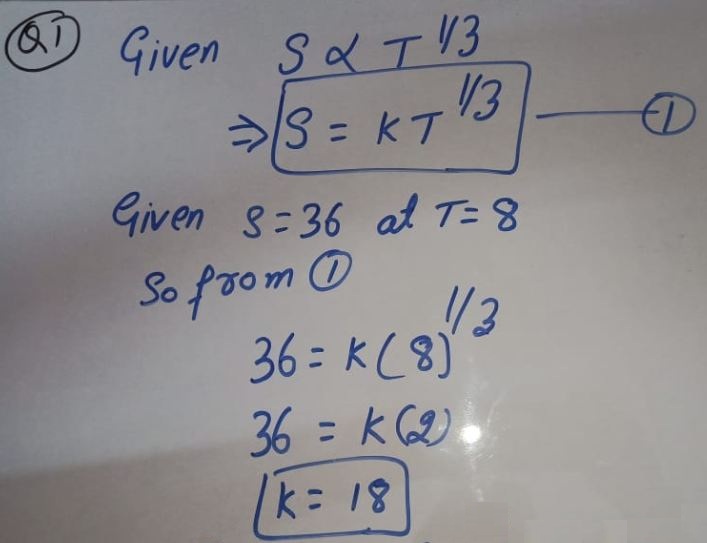 Q1 Given S ∝ T 1/3
⇒ S = KT 1/3 —— 1
Given S=36 at T=8
So from 1
36 = K(8) 1/3
36 = K(2)
K = 18